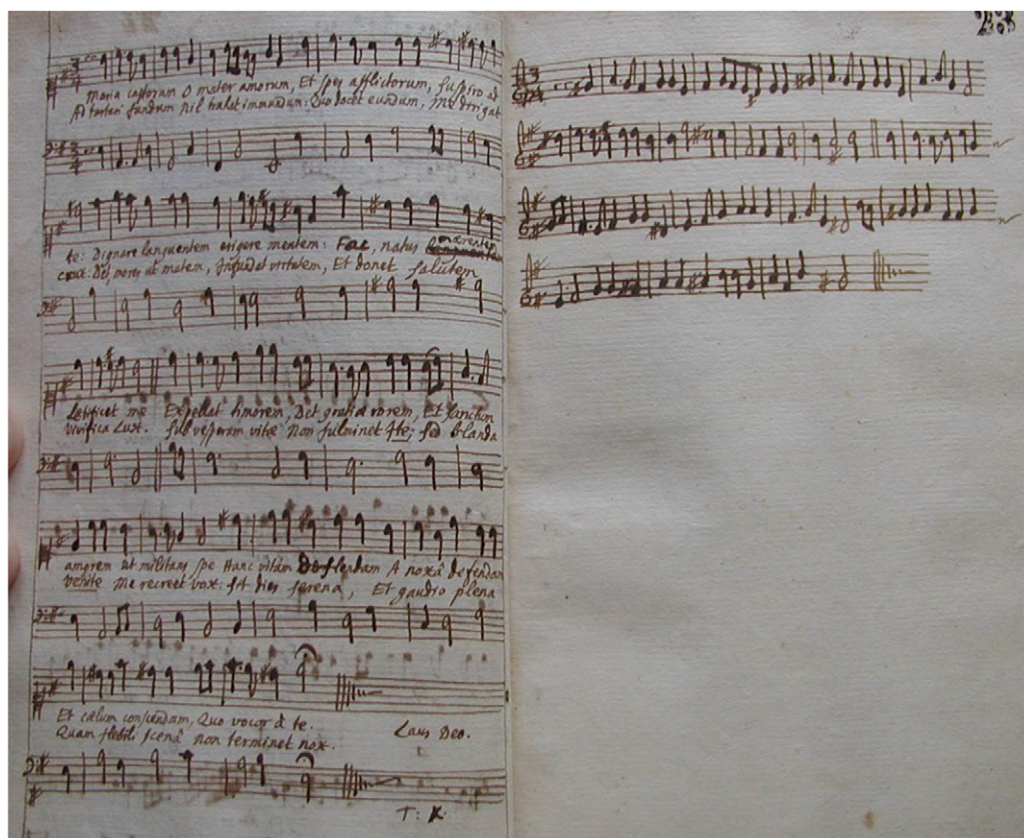 Maria castorum O mater amorum, Et spes afflictorum, suspiro ad
Ad tartari fundum Nil trahat immundum: Quo docet eundum, Me dirigat
te: Dignare languentem erigere mentem: Fac, natus mærentem
crux: Det mores ut matem, Infundat virtutem, Et donet salutem
Lætificet me Expellat timorem, Det gratiæ rorem, Et sanctum
vivifica Lux. Sub vesperam vitæ Non fulminet Ite; sed blanda
amorem ut militans spe Hanc vitam deflendam A noxâ defendam
venite Me recreet vox: sit dies serena, Et gaudio plena
Et cælum conscendam, Quo vocor à te.
Laus Deo.
Quam flebili scenâ non terminet nox.
T: K.